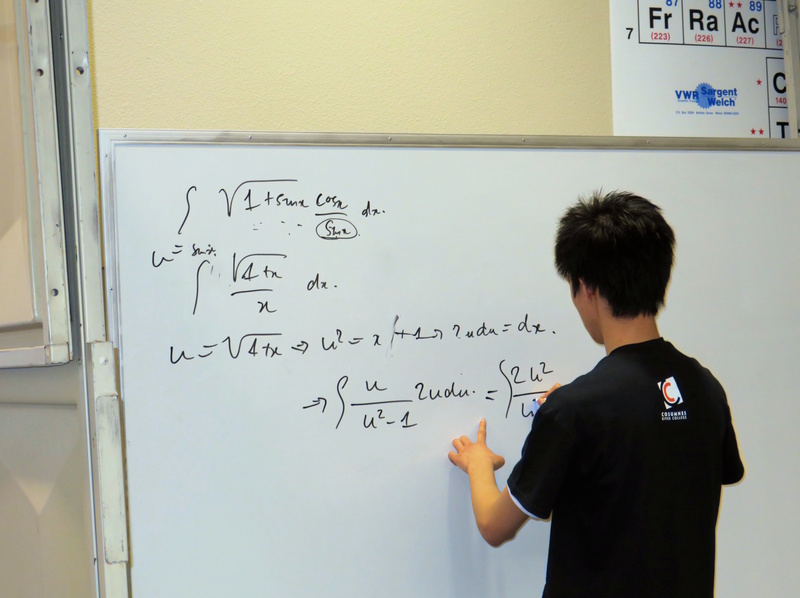 87 88 ★★ 89
7 Fr Ra Ac
(223) (226) (227)
VWR Sargent Welch
★ C
140
★★ T
∫ √1+sinx cosx/sinx dx.
u = sinx
∫ √1+x/x dx.
u = √1+x ⇒ u² = x + 1 → 2udu = dx.
⇒ ∫ u/u²-1 2udu. = ∫ 2u²/u
C
COSUMNES
RIVER COLLEGE